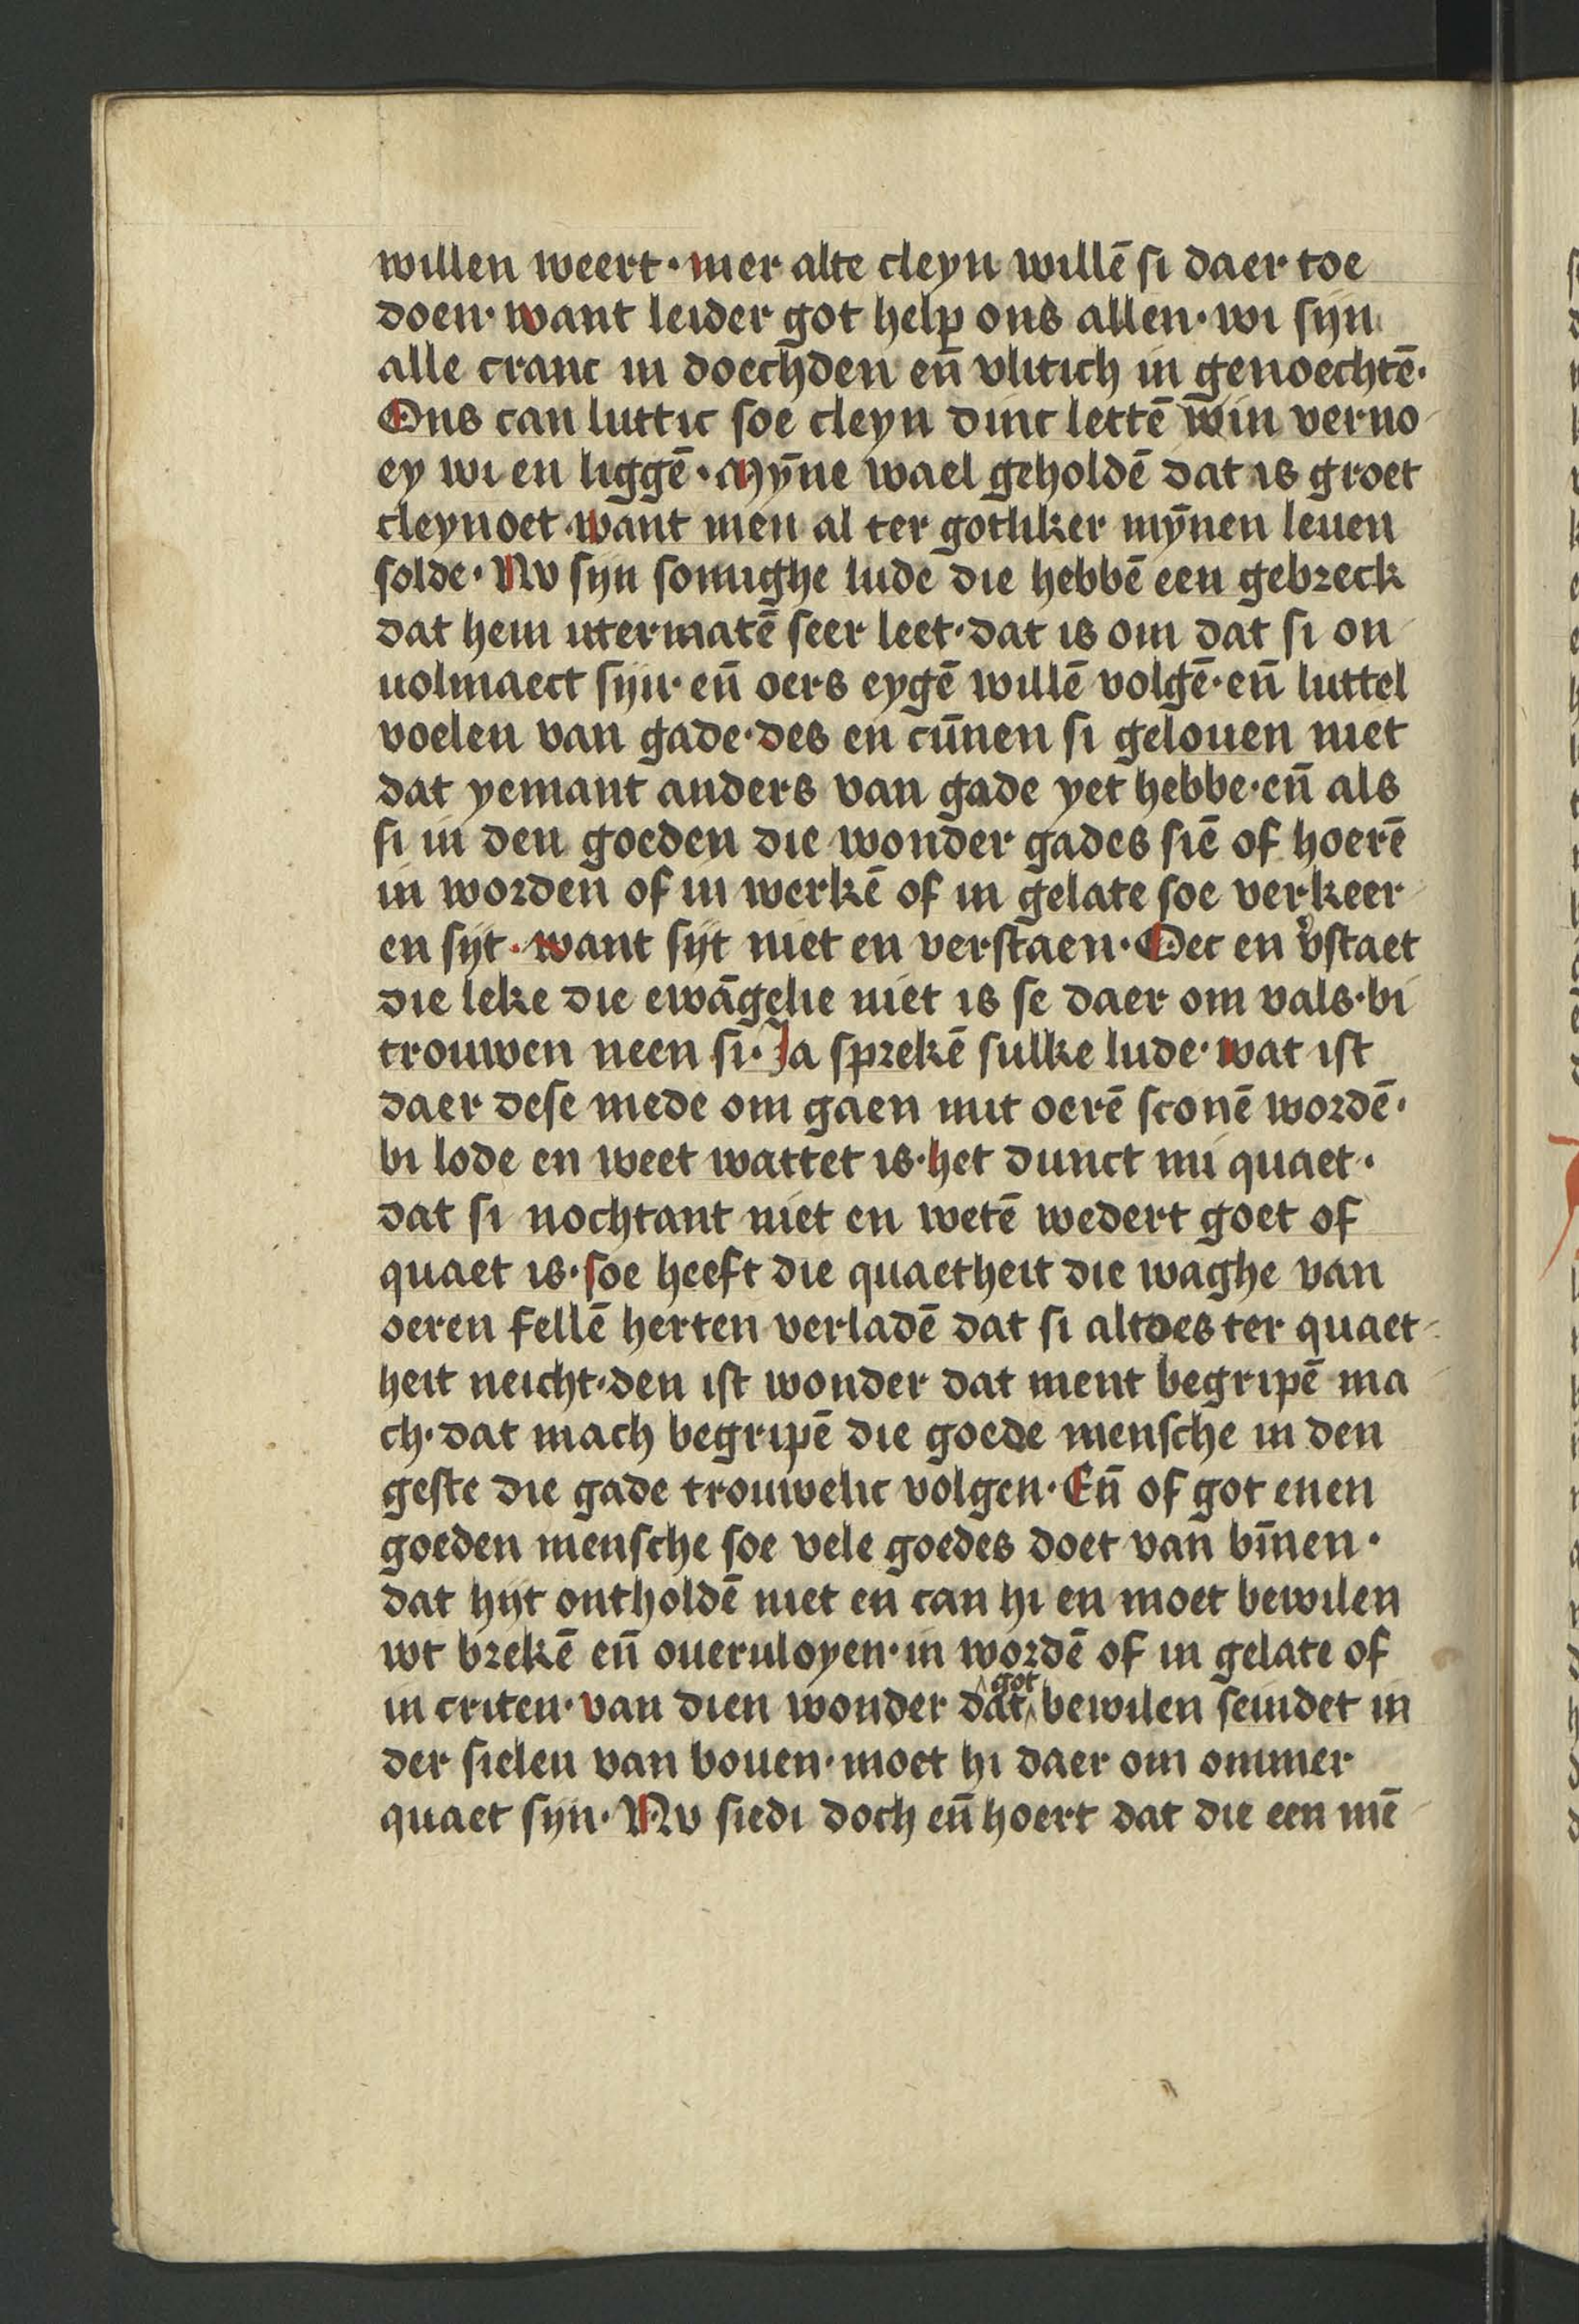 willen weert · mer alte cleyn willē si daer toe
doen · want leider got help ons allen · wi sijn
alle cranc in doechden eñ vlitich in genoechtē ·
Ons can luttic soe cleyn dinc lettē win verno-
ey wi en liggē · Mȳne wael geholdē dat is groet
cleynoet · want men al ter gotliker mȳnen leuen
solde · Nv sijn somighe lude die hebbē een gebreck
dat hem utermatē seer leet · dat is om dat si on-
uolmaect sijn · eñ oers eygē willē volgē · eñ luttel
voelen van gade · des en cūnen si gelouen niet
dat yemant anders van gade yet hebbe · eñ als
si in den goeden die wonder gades siē of hoerē
in worden of in werkē of in gelate soe verkeer-
en sijt · want sijt niet en verstaen · Oec en v̓staet
die leke die ewāgelie niet is se daer om vals · bi
trouwen neen si · Ja sprekē sulke lude · wat ist
daer dese mede om gaen mit oerē sconē wordē ·
bi lode en weet wattet is · het dunct mi quaet ·
dat si nochtant niet en wetē wedert goet of
quaet is · soe heeft die quaetheit die waghe van
oeren fellē herten verladē dat si altoes ter quaet-
heit neicht · den ist wonder dat ment begripē ma-
ch · dat mach begripē die goede mensche in den
geste die gade trouwelic volgen · Eñ of got enen
goeden mensche soe vele goedes doet van bīnen ·
dat hijt ontholdē niet en can hi en moet bewilen
wt brekē eñ oueruloyen · in wordē of in gelate of
in criten · van dien wonder dat got bewilen seindet in
der sielen van bouen · moet hi daer om ommer
quaet sijn · Nv siedi doch eñ hoert dat die een mē-